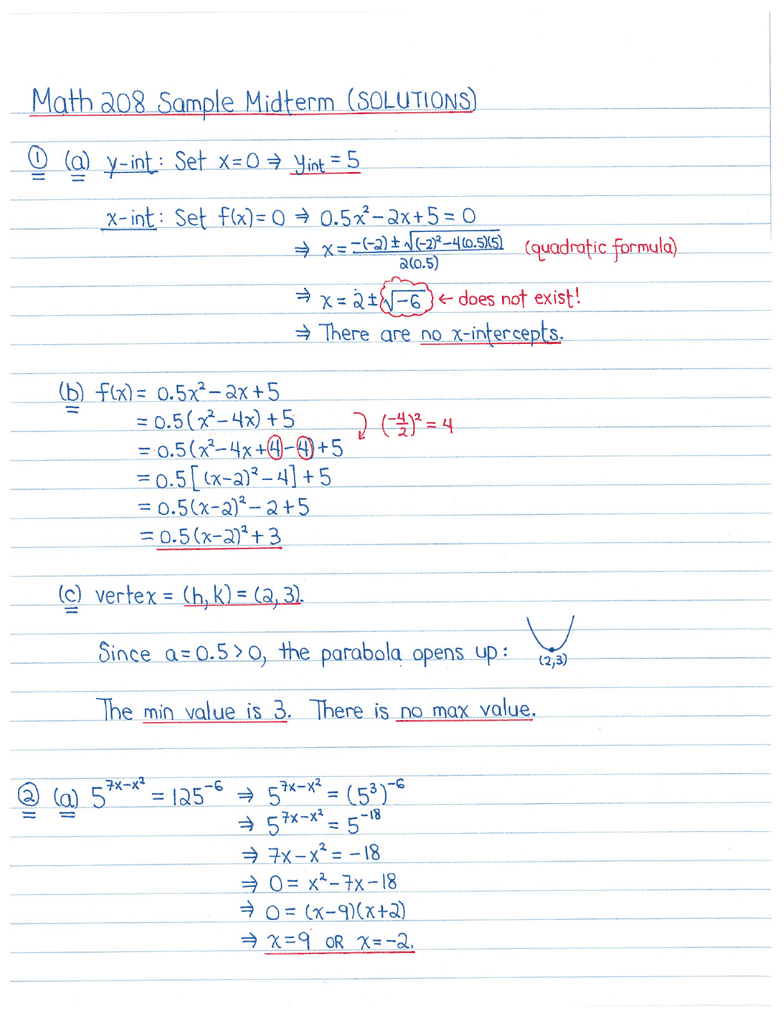 Math 208 Sample Midterm (SOLUTIONS)
① (a) y-int: Set x=0 ⇒ y_int = 5
x-int: Set f(x)=0 ⇒ 0.5x²-2x+5=0
⇒ x = (-(-2) ± √((-2)²-4(0.5)(5))) / 2(0.5) (quadratic formula)
⇒ x = 2 ± √-6 ← does not exist!
⇒ There are no x-intercepts.
(b) f(x) = 0.5x²-2x+5
= 0.5(x²-4x)+5
= 0.5(x²-4x+4-4)+5 (-4/2)² = 4
= 0.5[(x-2)²-4]+5
= 0.5(x-2)²-2+5
= 0.5(x-2)²+3
(c) vertex = (h,k) = (2,3).
Since a=0.5>0, the parabola opens up: (2,3)
The min value is 3. There is no max value.
② (a) 5^(7x-x²) = 125^(-6) ⇒ 5^(7x-x²) = (5³)^(-6)
⇒ 5^(7x-x²) = 5^(-18)
⇒ 7x-x² = -18
⇒ 0 = x²-7x-18
⇒ 0 = (x-9)(x+2)
⇒ x=9 OR x=-2.